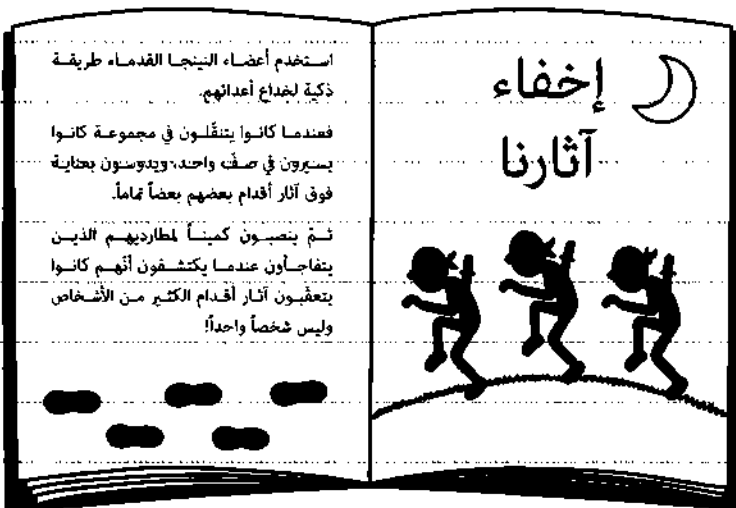 إخفاء
آثارنا
استخدم أعضاء النينجا القدماء طريقة
ذكية لخداع أعدائهم.
فعندما كانوا يتنقّلون في مجموعة كانوا
يسيرون في صفّ واحد، ويدوسون بعناية
فوق آثار أقدام بعضهم بعضاً تماماً.
ثمّ ينصبون كميناً لمطارديهم الذين
يتفاجأون عندما يكتشفون أنّهم كانوا
يتعقّبون آثار أقدام الكثير من الأشخاص
وليس شخصاً واحداً!